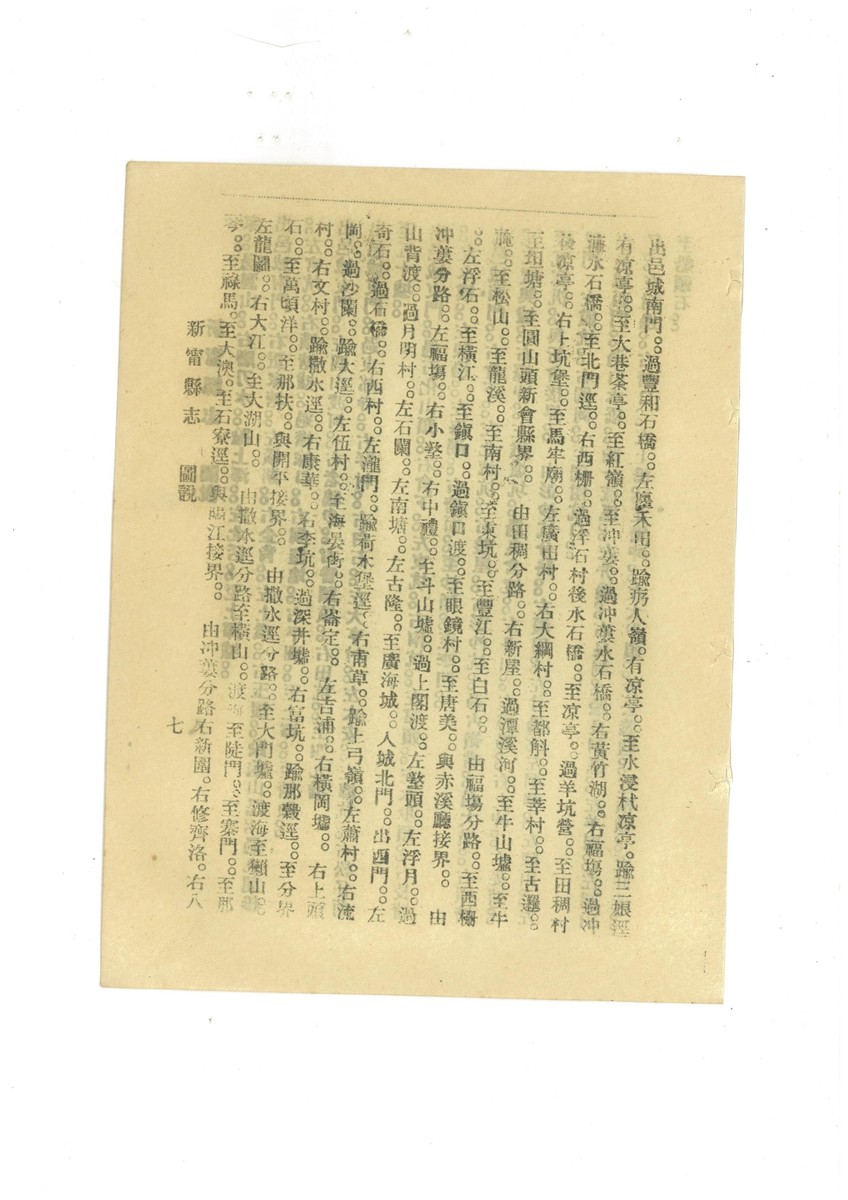 出邑城南門。。過豐和石橋。。左隳禾田。。踰痨人嶺。有凉亭。。至水浸杙凉亭。踰三娘逕
有凉亭。。至大巷茶亭。。至紅嶺。。至冲蔞。。過冲蔞水石橋。。右黃竹湖。。右福塲。。過冲
蔞水石橋。。至北門逕。。右西柵。。過浮石村後水石橋。。至凉亭。。過羊坑營。。至田稠村
後凉亭。。右上坑堡。。至馬牢廟。。左廣出村。。右大綱村。。至都斛。。至莘村。。至古邏。。
至坦塘。。至圓山頭新會縣界。。　由田稠分路。。右新屋。。過潭溪河。。至牛山墟。。至牛
。。至松山。。至龍溪。。至南村。。至東坑。。至豐江。。至白石。。　由福塲分路。。至西柵
。。左浮石。。至橫江。。至鎮口。。過鎮口渡。。至眼鏡村。。至唐美。。與赤溪廳接界。。　由
冲蔞分路。。左福塲。。右小墪。。右中禮。。至斗山墟。。過上閣渡。。左墪頭。。左浮月。。過
山背渡。。過月明村。。左石闌。。左南塘。。左古隆。。至廣海城。。入城北門。。出西門。。左
奇石。。過石橋。。右西村。。左瀧門。。踰荷木堡逕。。右甫草。。踰上弓嶺。。左蕭村。。右流
岡。。過沙闌。。踰大逕。。左伍村。。至海晏街。。右崙定。。左吉浦。。右橫岡墟。。右上頭
村。。右文村。。踰撒水逕。。右康華。。右李坑。。過深井墟。。右富坑。。踰那㲄逕。。至分界
石。。至萬頃洋。。至那扶。。與開平接界。。　由撒水逕分路。。至大門墟。。渡海至獺山。。
左龍圖。。右大江。。至大湖山。。　由撒水逕分路至橫山。。渡海至陡門。。至寨門。。至那
琴。。至祿馬。。至大澳。。至石寮逕。。與陽江接界。。　由冲蔞分路右新園。。右修齊洛。。右八
新甯縣志　圖說　七